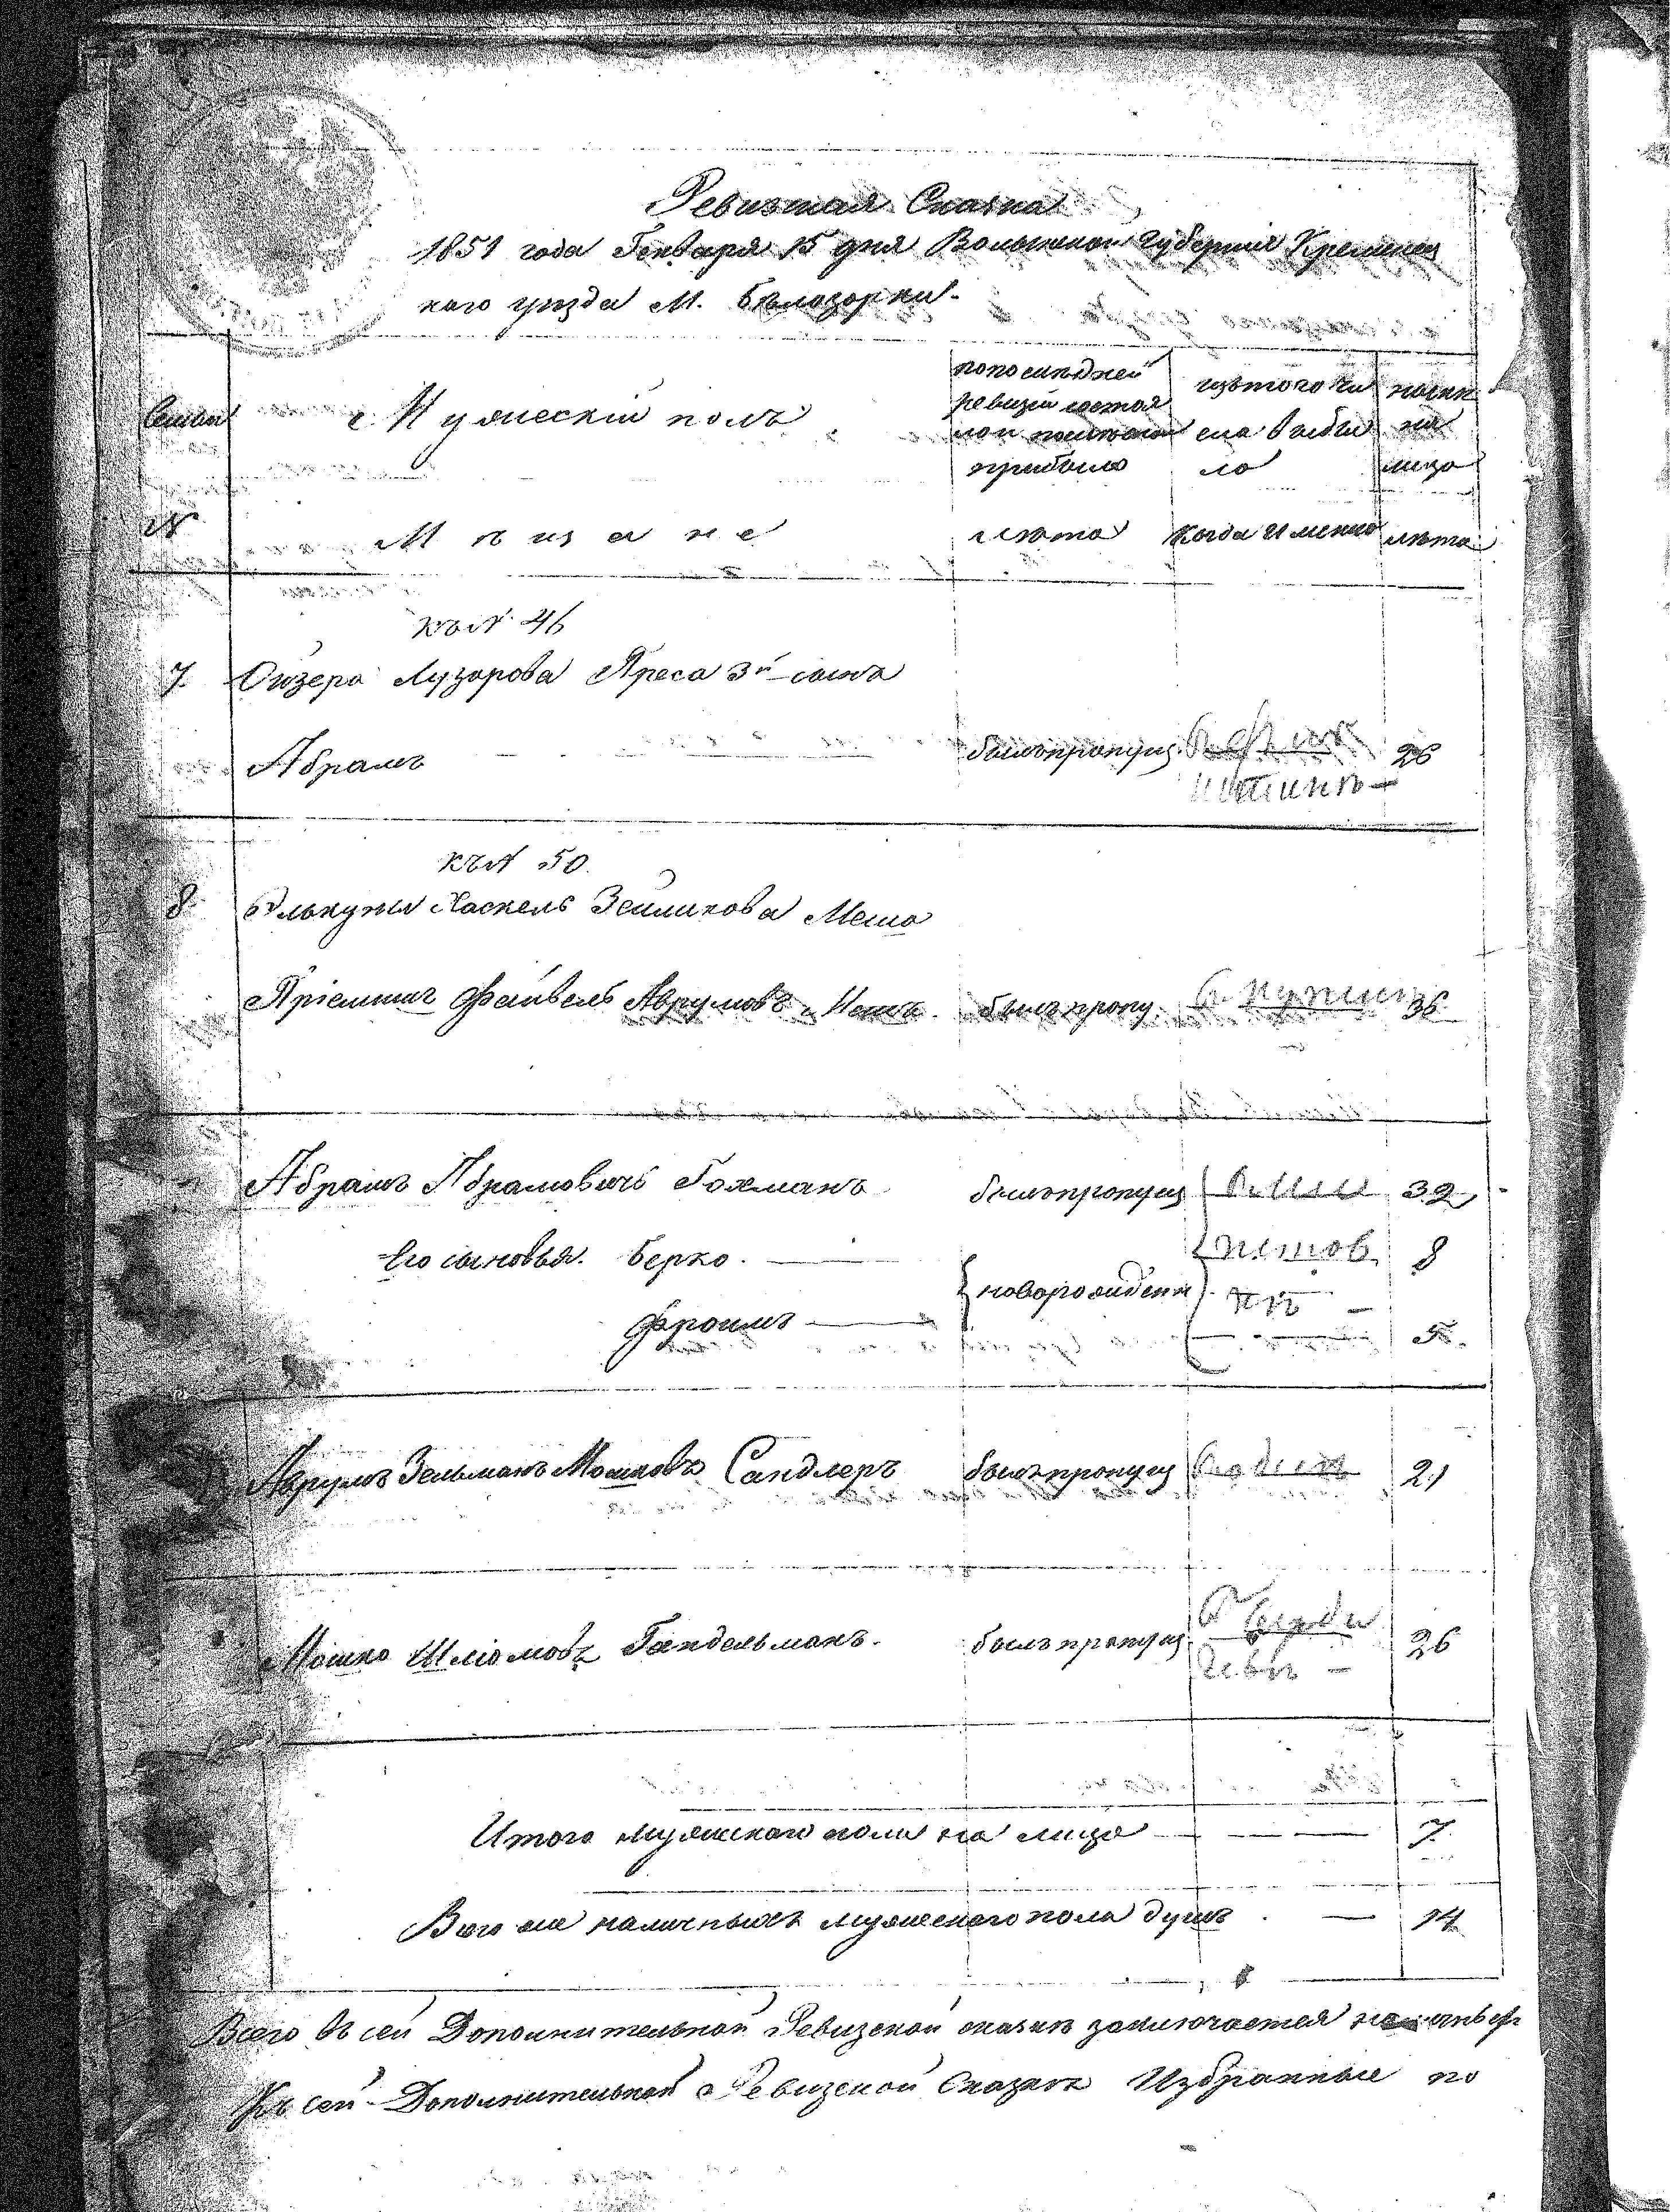 Ревизская Сказка
1851 года Генваря 15 дня Волынской Губернии Кременец
каго уѣзда М. Бѣлозорки
Семьи
Мужескій полъ
по последней
ревизіи состоя
ло и
прибыло
изъ того чи
сла выбы
ло
нынѣ
на
лицо
№
Мѣщане
лѣта
Когда Именно
лѣта
къ № 46
7. Лузорова 3й сынъ
Абрамъ
былъ пропущ.
26
къ № 50.
8. Хаскель Зейликова
Файвель Аврумовъ
былъ пропу.
36
Абрамъ Абрамовичъ Гохманъ
былъ пропущ
32
Его сыновья. Берко.
новорожден
8
Фроимъ
5.
Аврумъ Зельманъ Мошковъ Сандлеръ
былъ пропущ
21
Мошко Шліомовъ Гандельманъ.
былъ пропущ
26
Итого мужескаго пола на лицо
7
Всего же наличныхъ мужескаго пола душъ
14
Всего въ сей Дополнительной Ревизской сказкѣ заключается
Къ сей Дополнительной Ревизской Сказкѣ Избранные по